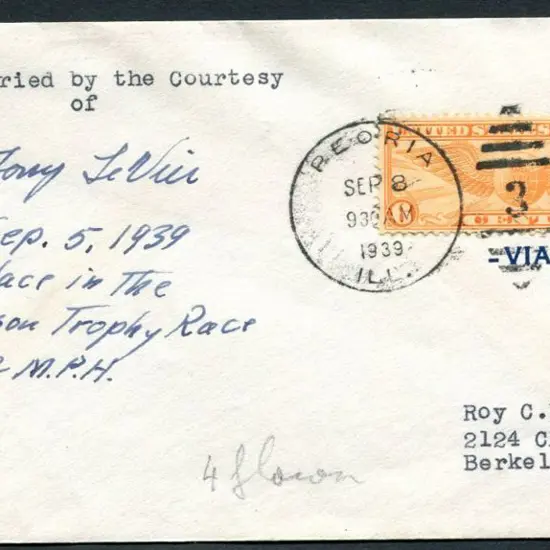 ried by the Courtesy
of
Tony LeVier
Sep. 5, 1939
lace in The
son Trophy Race
M.P.H.
PEORIA
SEP 8
930 AM
1939
ILL.
UNITED STATES
6 CENTS
3
-VIA
Roy C.
2124 C
Berkel
4 flown